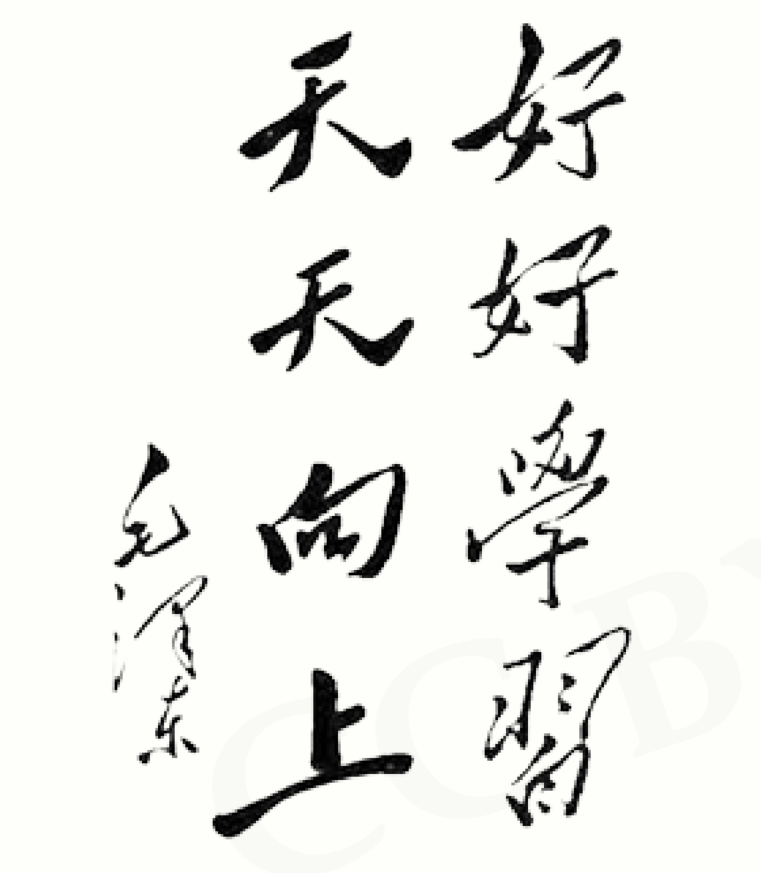 好好學習
天天向上
毛泽东
CC BY